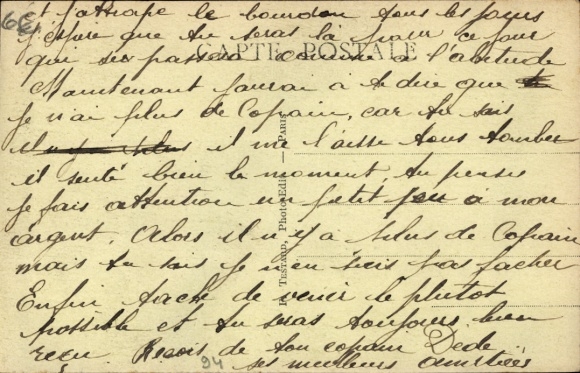 et j'attrape le bourdon tous les jours
j'espere que tu seras là pour ce jour
CARTE POSTALE
qui se passera comme a l'abitude
Maintenant j'aurai a te dire que
je n'ai plus de Copain, car tu sais
il me laisse tous tomber
il senté bien le moment, tu penses
je fais attention un petit peu a mon
argent. Alors il n'y a plus de Copain
mais tu sais je n'en suis pas facher
Enfin tache de venir le plutot
possible et tu seras toujours bien
reçu. Reçois de ton copain Dédé
94 ses meilleurs amitiées
TESTARD, Photo-Edit. — PARIS